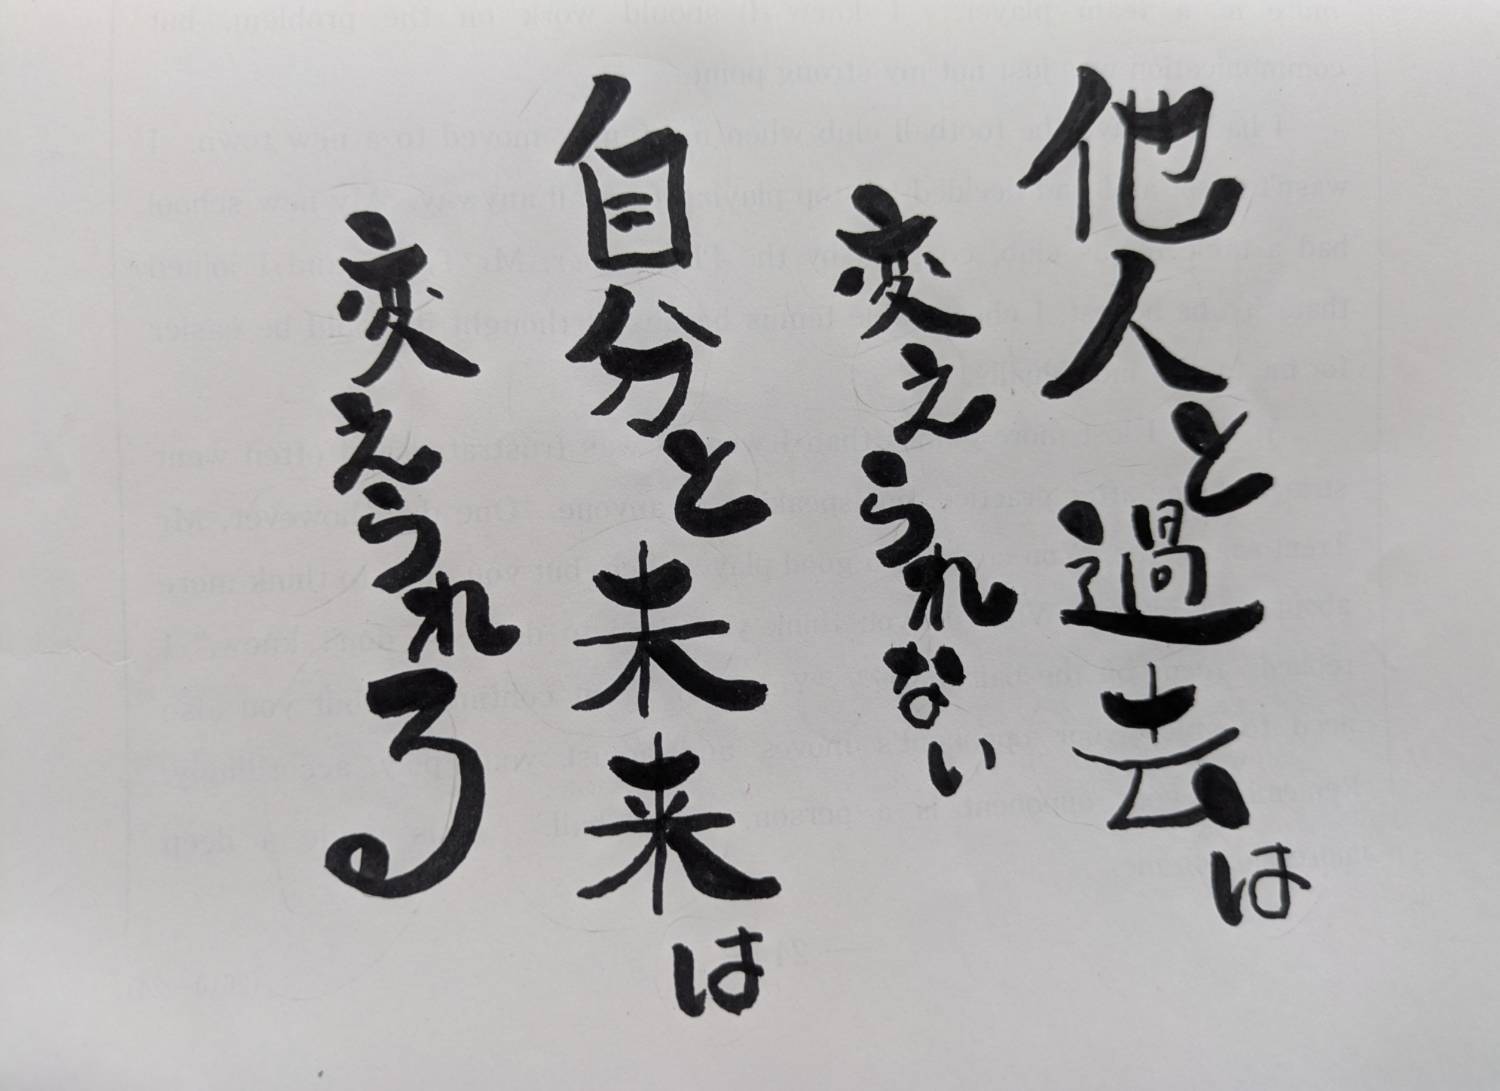 他人と過去は
変えられない
自分と未来は
変えられる